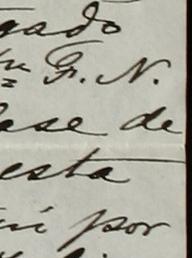 gado
F. N.
ase de
esta
por